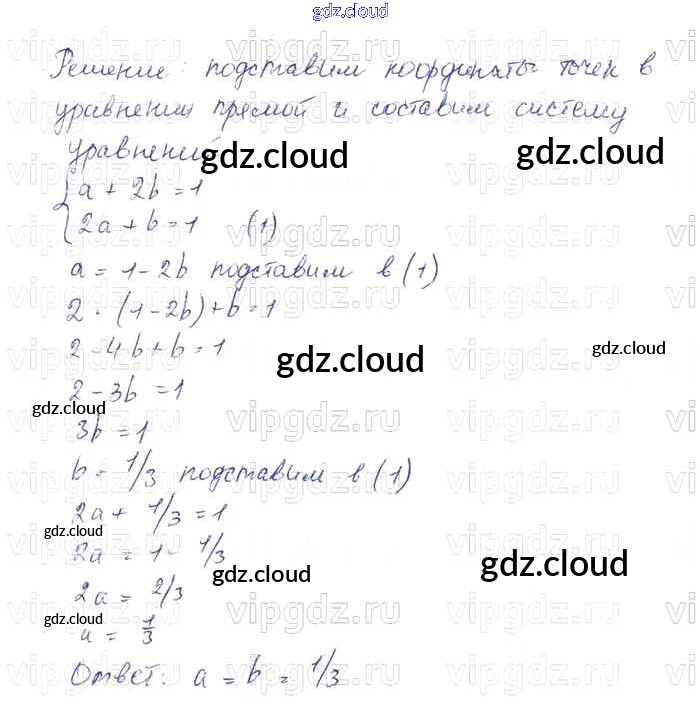 gdz.cloud
Решение: подставим координаты точек в
уравнении прямой и составим систему
уравнений
{a + 2b = 1
{2a + b = 1 (1)
a = 1 - 2b подставим в (1)
2 · (1 - 2b) + b = 1
2 - 4b + b = 1
2 - 3b = 1
3b = 1
b = 1/3 подставим в (1)
2a + 1/3 = 1
2a = 1 - 1/3
2a = 2/3
a = 1/3
Ответ: a = b = 1/3
gdz.cloud
gdz.cloud
gdz.cloud
gdz.cloud
gdz.cloud
gdz.cloud
gdz.cloud
gdz.cloud
gdz.cloud
vipgdz.ru